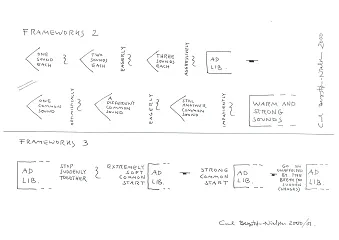 FRAMEWORKS 2
ONE
SOUND
EACH
EAGERLY
TWO
SOUNDS
EACH
EAGERLY
THREE
SOUNDS
EACH
AGGRESSIVELY
AD
LIB
ONE
COMMON
SOUND
DIFFERENT
COMMON
SOUND
EAGERLY
STILL
ANOTHER
COMMON
SOUND
IMPATIENTLY
WARM AND
STRONG
SOUNDS
Carl Bergstrøm-Nielsen 2000
FRAMEWORKS 3
AD
LIB.
STOP
SUDDENLY
TOGETHER
EXTREMELY
SOFT
COMMON
START
AD
LIB.
STRONG
COMMON
START
AD
LIB.
GO ON
UNAFFECTED
BY THE
SUDDEN
AD
LIB.
Carl Bergstrøm-Nielsen 2000/01.